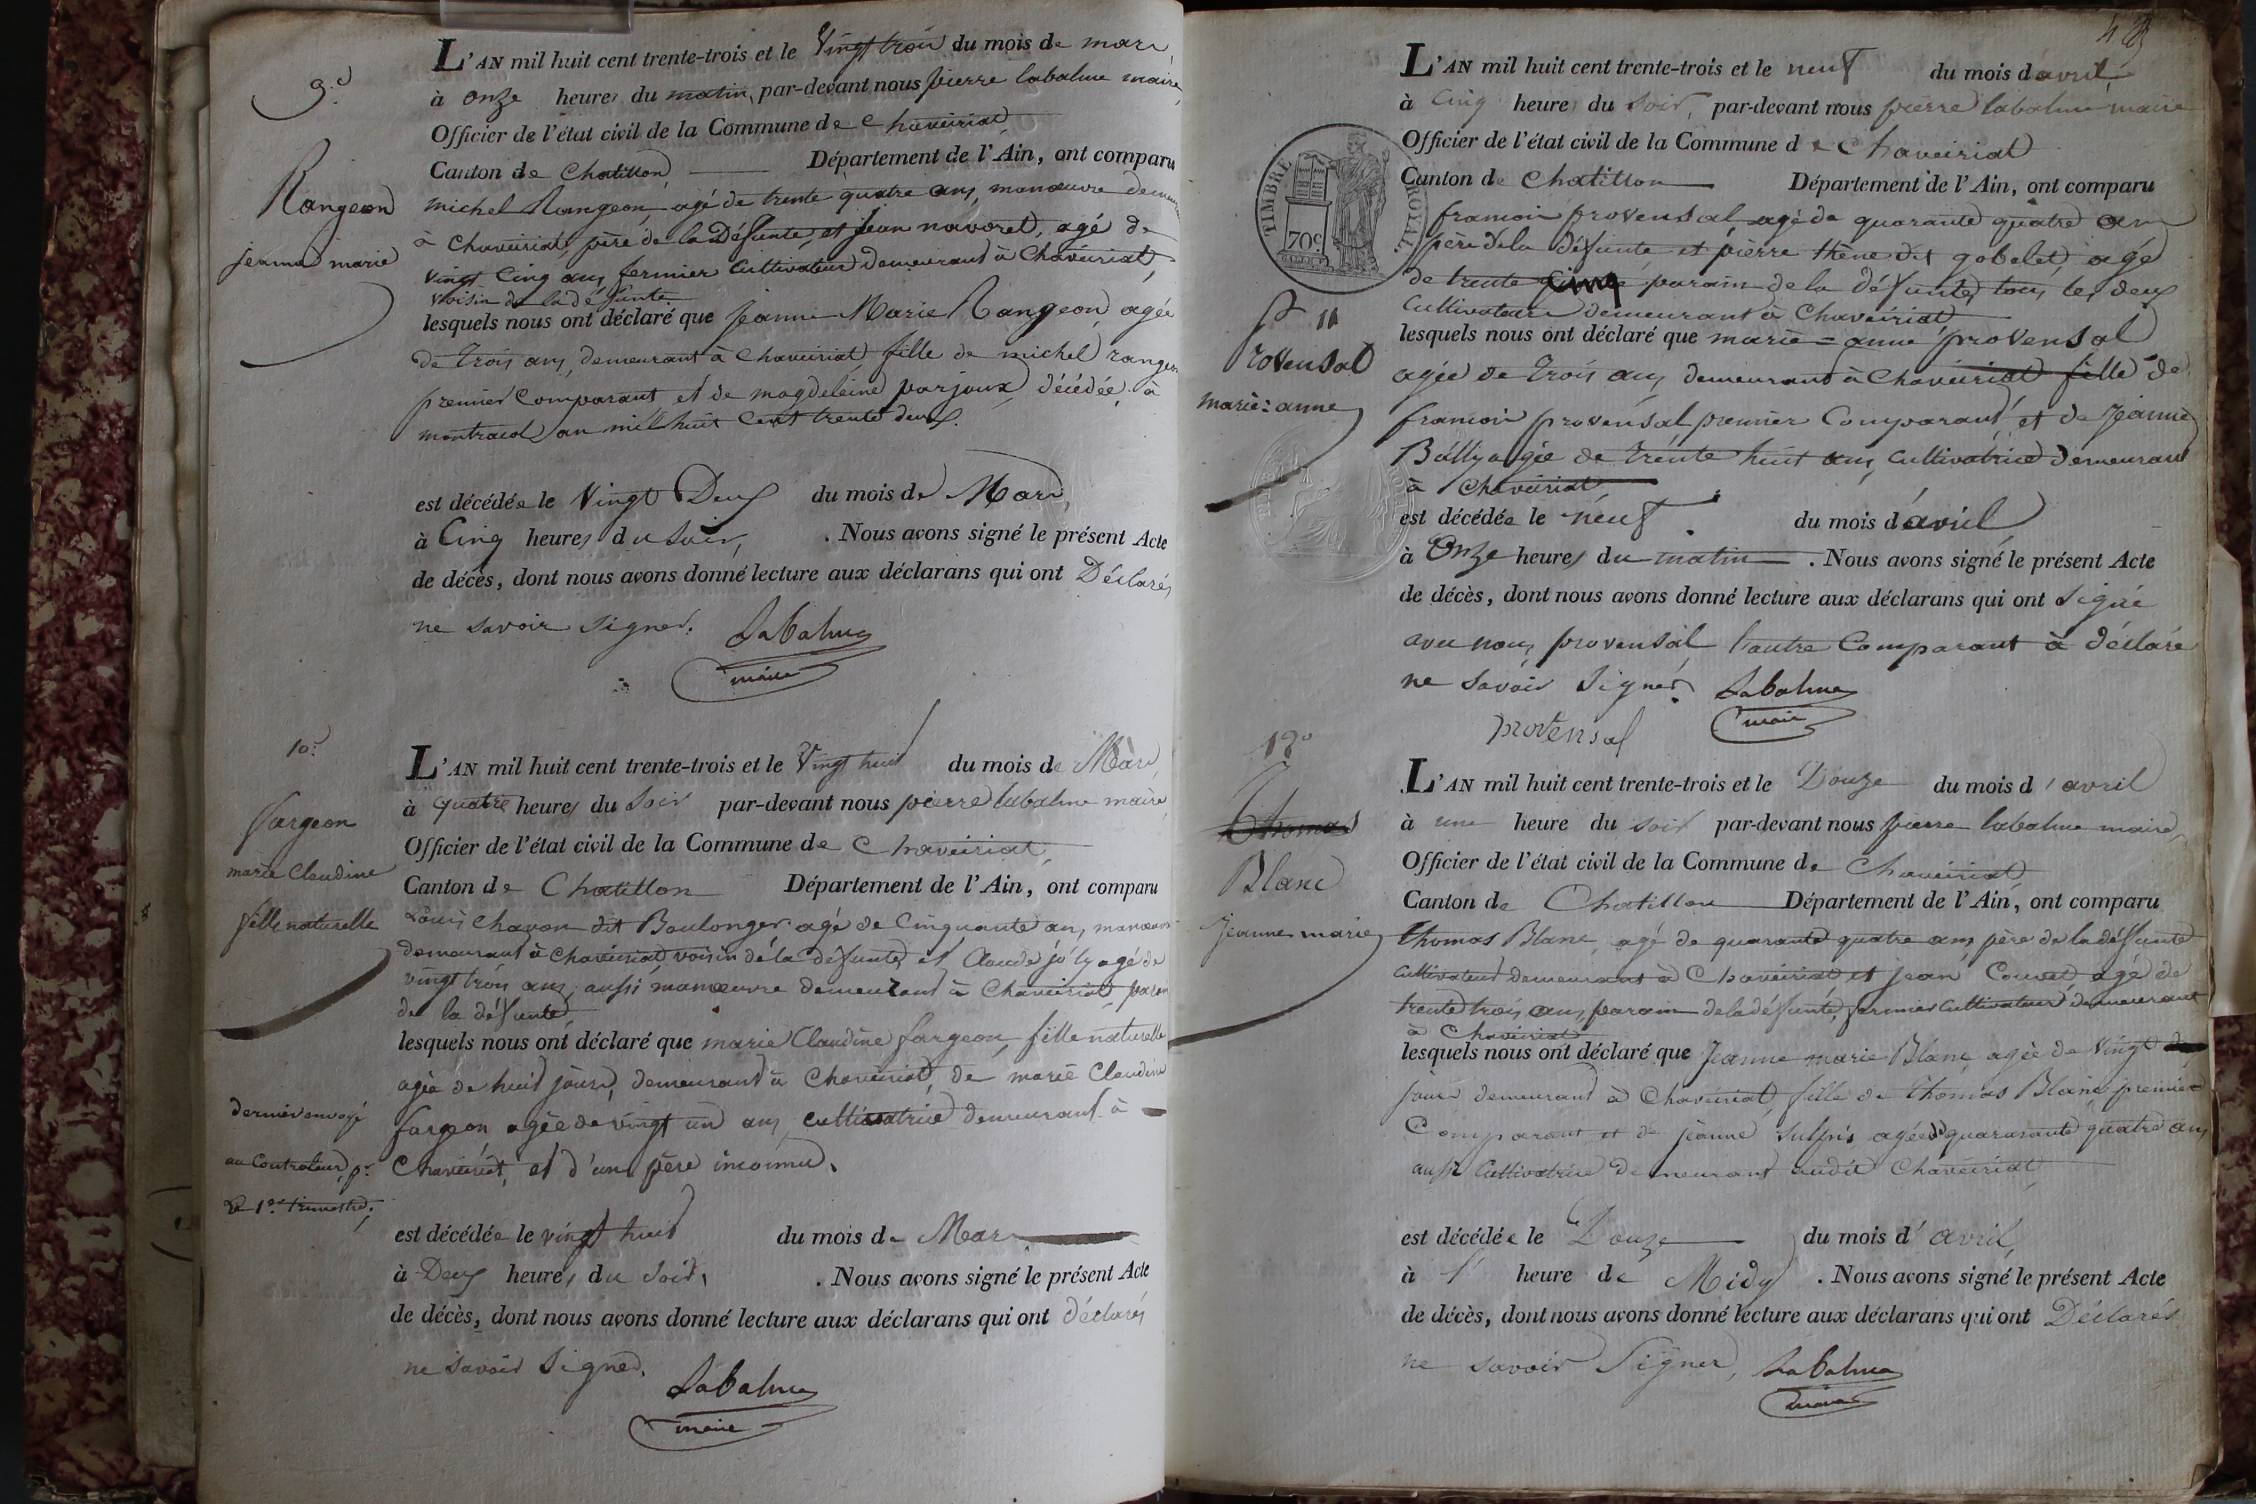 9.e
Rangeon
jeanne marie
L'AN mil huit cent trente-trois et le Vingt trois du mois de mars
à onze heures du matin, par-devant nous pierre labalme maire,
Officier de l'état civil de la Commune de Chaveiriat
Canton de Chatillon Département de l'Ain, ont comparu
michel Rangeon, agé de trente quatre ans, manœuvre
à Chaveiriat, père de la Défunte, et jean navoret, agé de
vingt Cinq ans, fermier Cultivateur demeurant à Chaveiriat,
voisin de la défunte
lesquels nous ont déclaré que jeanne Marie Rangeon, agée
de trois ans, demeurant à Chaveiriat, fille de michel rangeon
premier Comparant et de magdeleine parjoux, décédée à
montracol, an mil huit Cent trente deux.
est décédée le Vingt Deux du mois de Mars,
à Cinq heures du soir, . Nous avons signé le présent Acte
de décès, dont nous avons donné lecture aux déclarans qui ont Déclarés
ne savoir signer. Labalme
maire
10.e
fargeon
marie Claudine
fille naturelle
L'AN mil huit cent trente-trois et le Vingt huit du mois de Mars,
à quatre heures du soir par-devant nous pierre labalme maire
Officier de l'état civil de la Commune de Chaveiriat,
Canton de Chatillon Département de l'Ain, ont comparu
Louis Chavon dit Boulonger agé de Cinquante ans, manœuvre
demeurant à Chaveiriat, voisin de la défunte, et Claude joly agé de
vingt trois ans, aussi manœuvre demeurant à Chaveiriat, parain
de la défunte,
lesquels nous ont déclaré que marie Claudine fargeon, fille naturelle
agée de huit jours, demeurant à Chaveiriat, de marie Claudine
fargeon agée de vingt un ans, cultivatrice demeurant à
Chaveiriat, et d'un père inconnu.
dernier envoyé
au Controleur, pr.
le 1er trimestre.
est décédée le vingt huit du mois de Mars
à Deux heures du soir, . Nous avons signé le présent Acte
de décès, dont nous avons donné lecture aux déclarans qui ont déclarés
ne savoir signer. Labalme
maire
TIMBRE ROYAL
70c
11
Provensal
marie=anne
L'AN mil huit cent trente-trois et le neuf du mois d'avril
à Cinq heures du soir, par-devant nous pierre labalme maire
Officier de l'état civil de la Commune de Chaveiriat
Canton de Chatillon Département de l'Ain, ont comparu
francois provensal agé de quarante quatre ans
père de la défunte et pierre thène dit gobelet, agé
de trente Cinq parain de la défunte, tous les deux
Cultivateurs demeurant à Chaveiriat
lesquels nous ont déclaré que marie=anne provensal
agée de trois ans, demeurant à Chaveiriat fille de
francois provensal premier Comparant, et de Jeanne
Bally agée de trente huit ans, Cultivatrice demeurant
à Chaveiriat
est décédée le neuf du mois d'avril
à Onze heures du matin . Nous avons signé le présent Acte
de décès, dont nous avons donné lecture aux déclarans qui ont signé
avec nous, provensal l'autre Comparant à déclaré
ne savoir signer, Labalme
maire
provensal
12e
Thomas
Blanc
Jeanne marie
L'AN mil huit cent trente-trois et le Douze du mois d'avril
à une heure du soir par-devant nous pierre labalme maire,
Officier de l'état civil de la Commune de Chaveiriat,
Canton de Chatillon Département de l'Ain, ont comparu
thomas Blanc, agé de quarante quatre ans père de la défunte
cultivateur demeurant à Chaveiriat et jean Couvet, agé de
trente trois ans, parain de la défunte, fermier Cultivateur demeurant
à Chaveiriat
lesquels nous ont déclaré que Jeanne marie Blanc agée de Vingt
jours demeurant à Chaveiriat, fille de thomas Blanc, premier
Comparant et de jeanne agée de quararante quatre ans,
aussi Cultivatrice demeurant audit Chaveiriat,
est décédée le Douze du mois d'avril,
à l' heure de Midy . Nous avons signé le présent Acte
de décès, dont nous avons donné lecture aux déclarans qui ont Déclarés
ne savoir signer, Labalme
maire